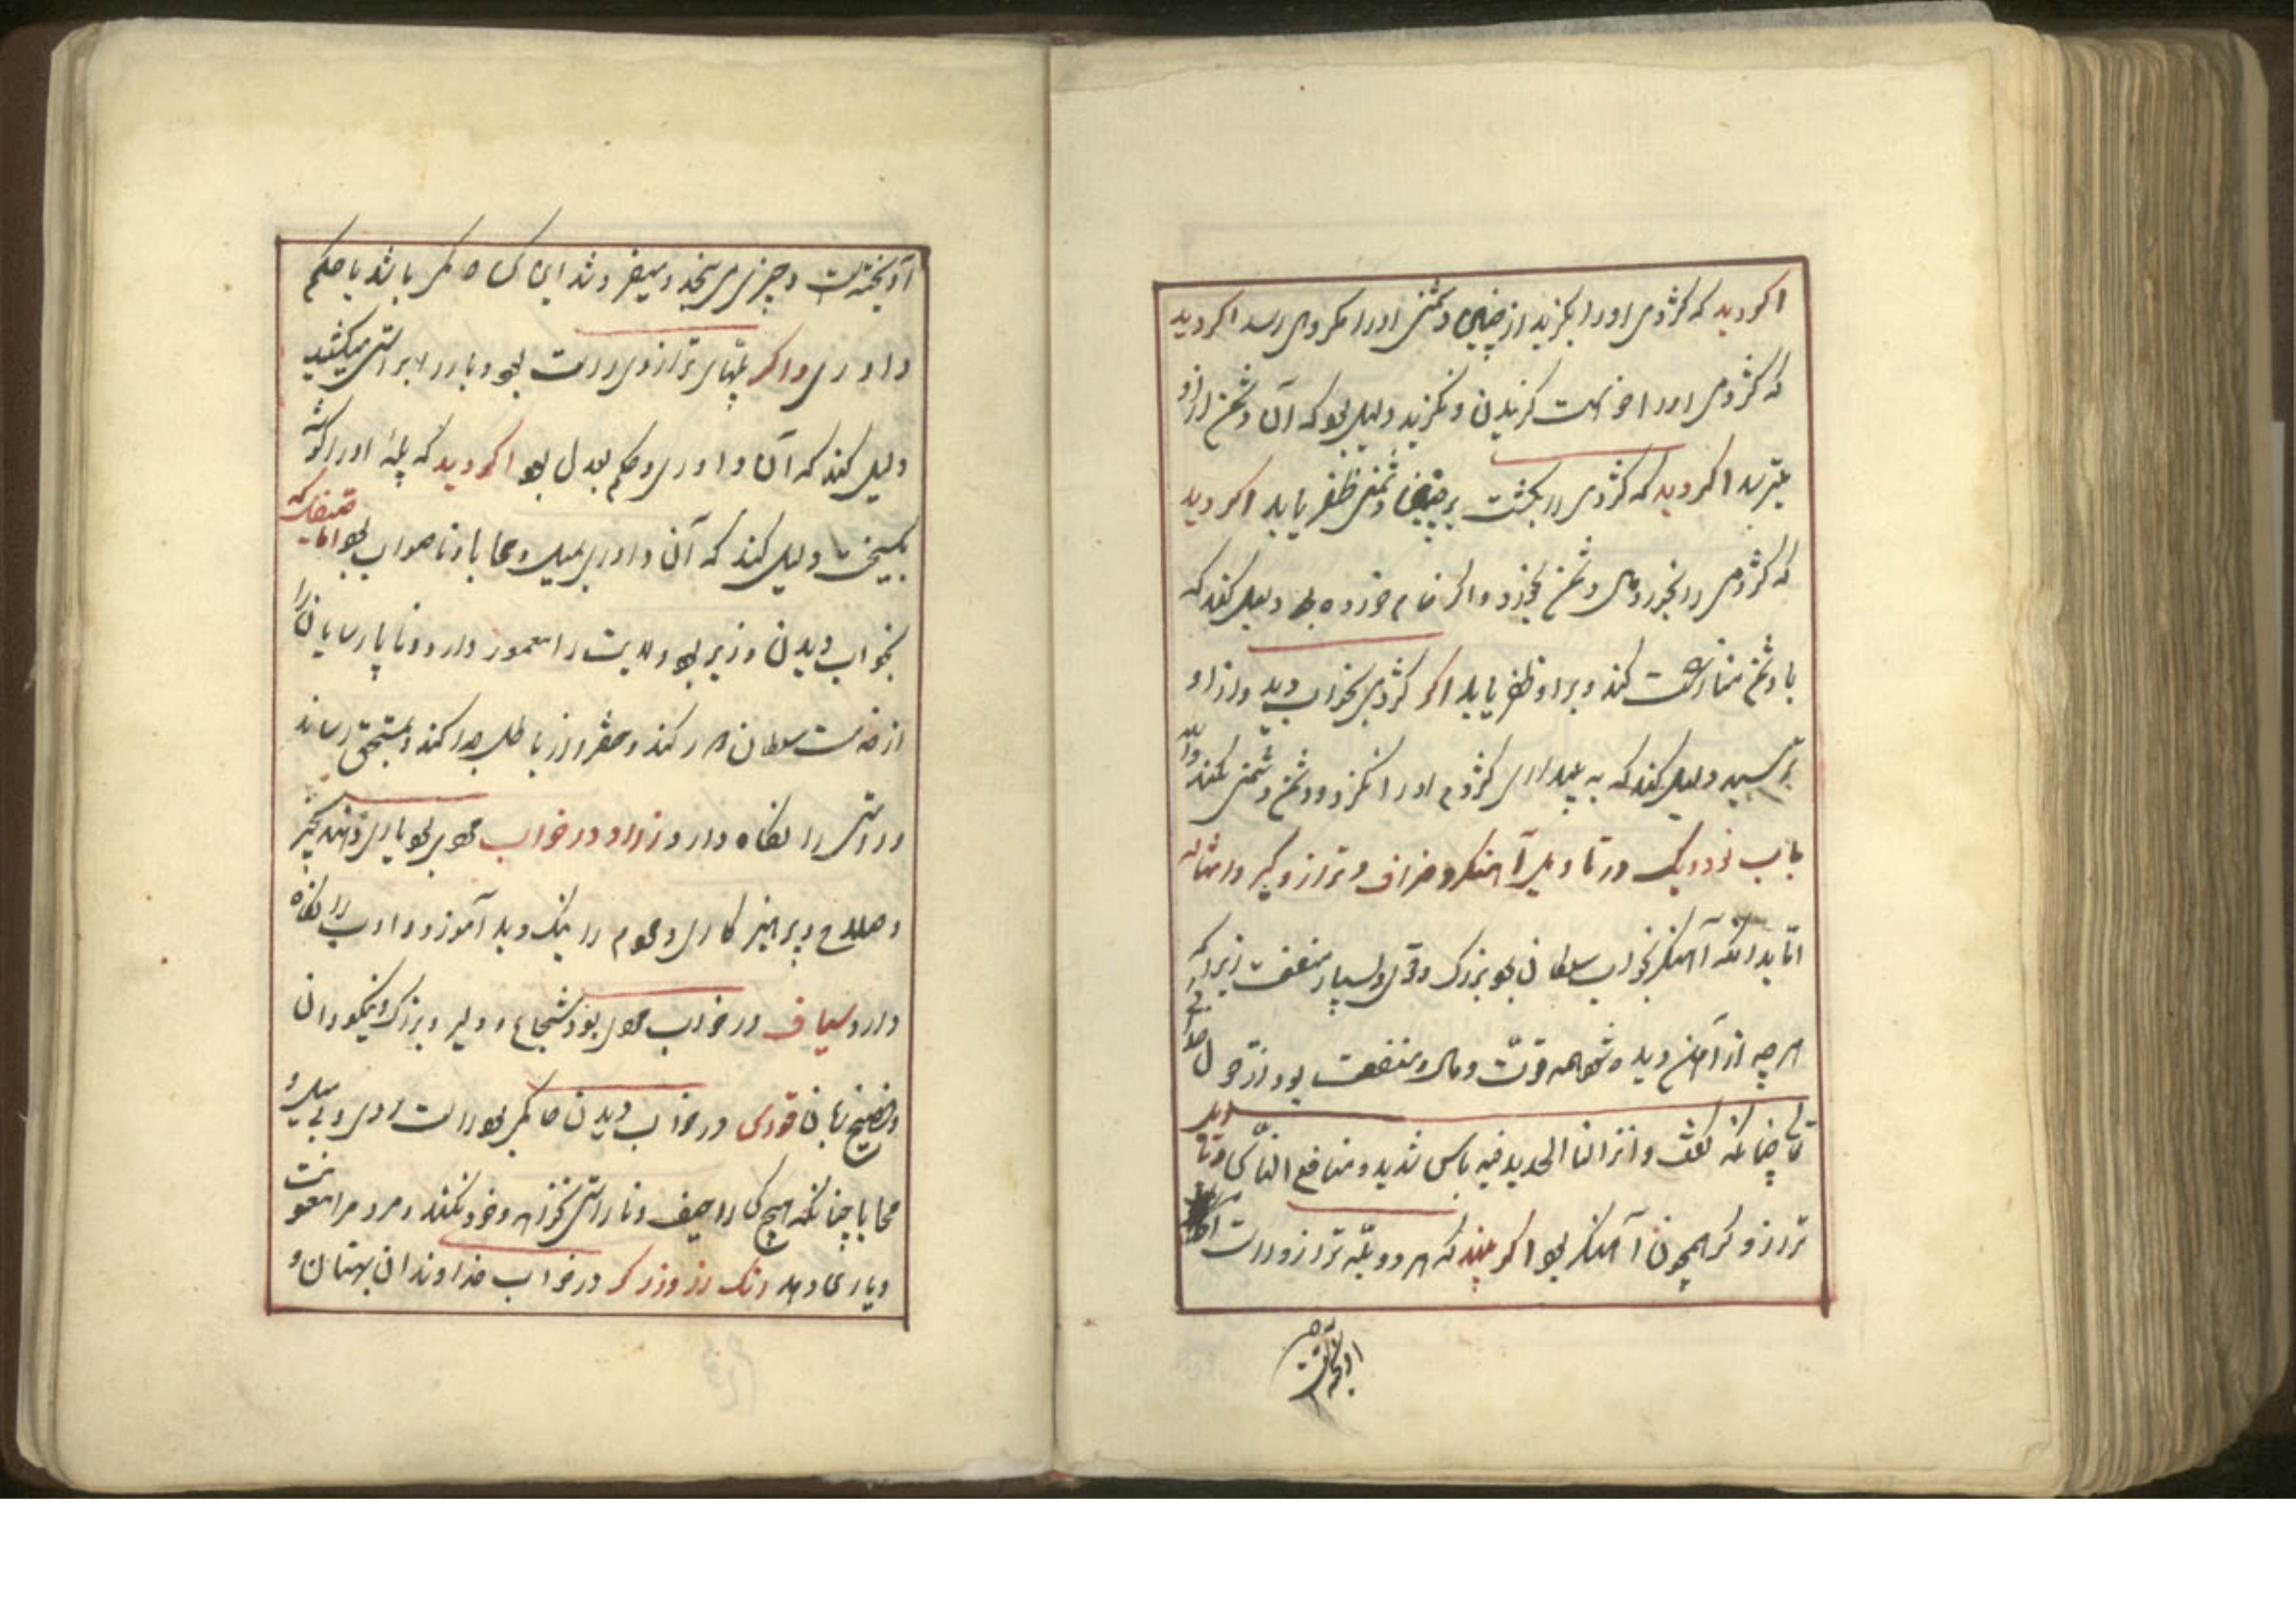 اکر دید که کژدمی اورا بکزید از چنین دشمنی اورا مکروهی رسد اکر دید
که کژدمی اورا خواست کزیدن و نکزید دلیل بود که آن دشمن ازو
بترسد اکر دید که کژدمی را بکشت بر چنین دشمنی ظفر یابد اکر دید
که کژدمی را بخورد مال دشمن بخورد و اکر خام خورده بود دلیل کند که
با دشمن منازعت کند و برو ظفر یابد اکر کژدمی بخواب دید و از او
بترسید دلیل کند که به بیداری کژدم اورا نکزد و دشمن دشمنی نکند
باب نود و یک در تاویل آهنکر و صراف و ترازو کر و امثاله
اما بدانکه آهنکر بخواب سلطانی بود بزرک و قوی و بسیار منفعت زیرا که
هر چه از آهن دیده شود همه قوت و مال و منفعت بود از قول خدای
تعالی چنانکه کفت وانزلنا الحدید فیه باس شدید و منافع للناس
ترازو کر همچون آهنکر بود اکر بیند که هر دو پله ترازو راست
آویخته است
آویخته است و چیزی می سنجد و میفروشد این کس حاکمی باشد یا حکم
داوری و اکر پلهای ترازوی راست بود و بار را براستی میکشید
دلیل کند که آن داوری و حکم بعدل بود اکر دید که پله اورا کوشه
بکسیخت دلیل کند که آن داوری بمیل و محابا و ناصواب بود اما
بخواب دیدن وزیر بود ولایت را معمور دارد و ناپارسایان را
از خدمت سلطان دور کند و حق را از باطل جدا کند و بمستحق رساند
و راستی را نکاه دارد زراد در خواب مردی بود یاری دهنده بخیر
و صلاح و پرهیزکاری و مردم را نیک و بد آموزد و ادب را نکاه
دارد سیاف در خواب مردی بود شجاع و دلیر و بزرک و نیکودان
و فصیح زبان در خواب دیدن حاکمی بود راست رای و بی میل و
محابا چنانکه هیچ کس را حیف و ناراستی نکند و مردم را معونت
و یاری دهد رنک رز و زرکر در خواب خداوندان بهتان و